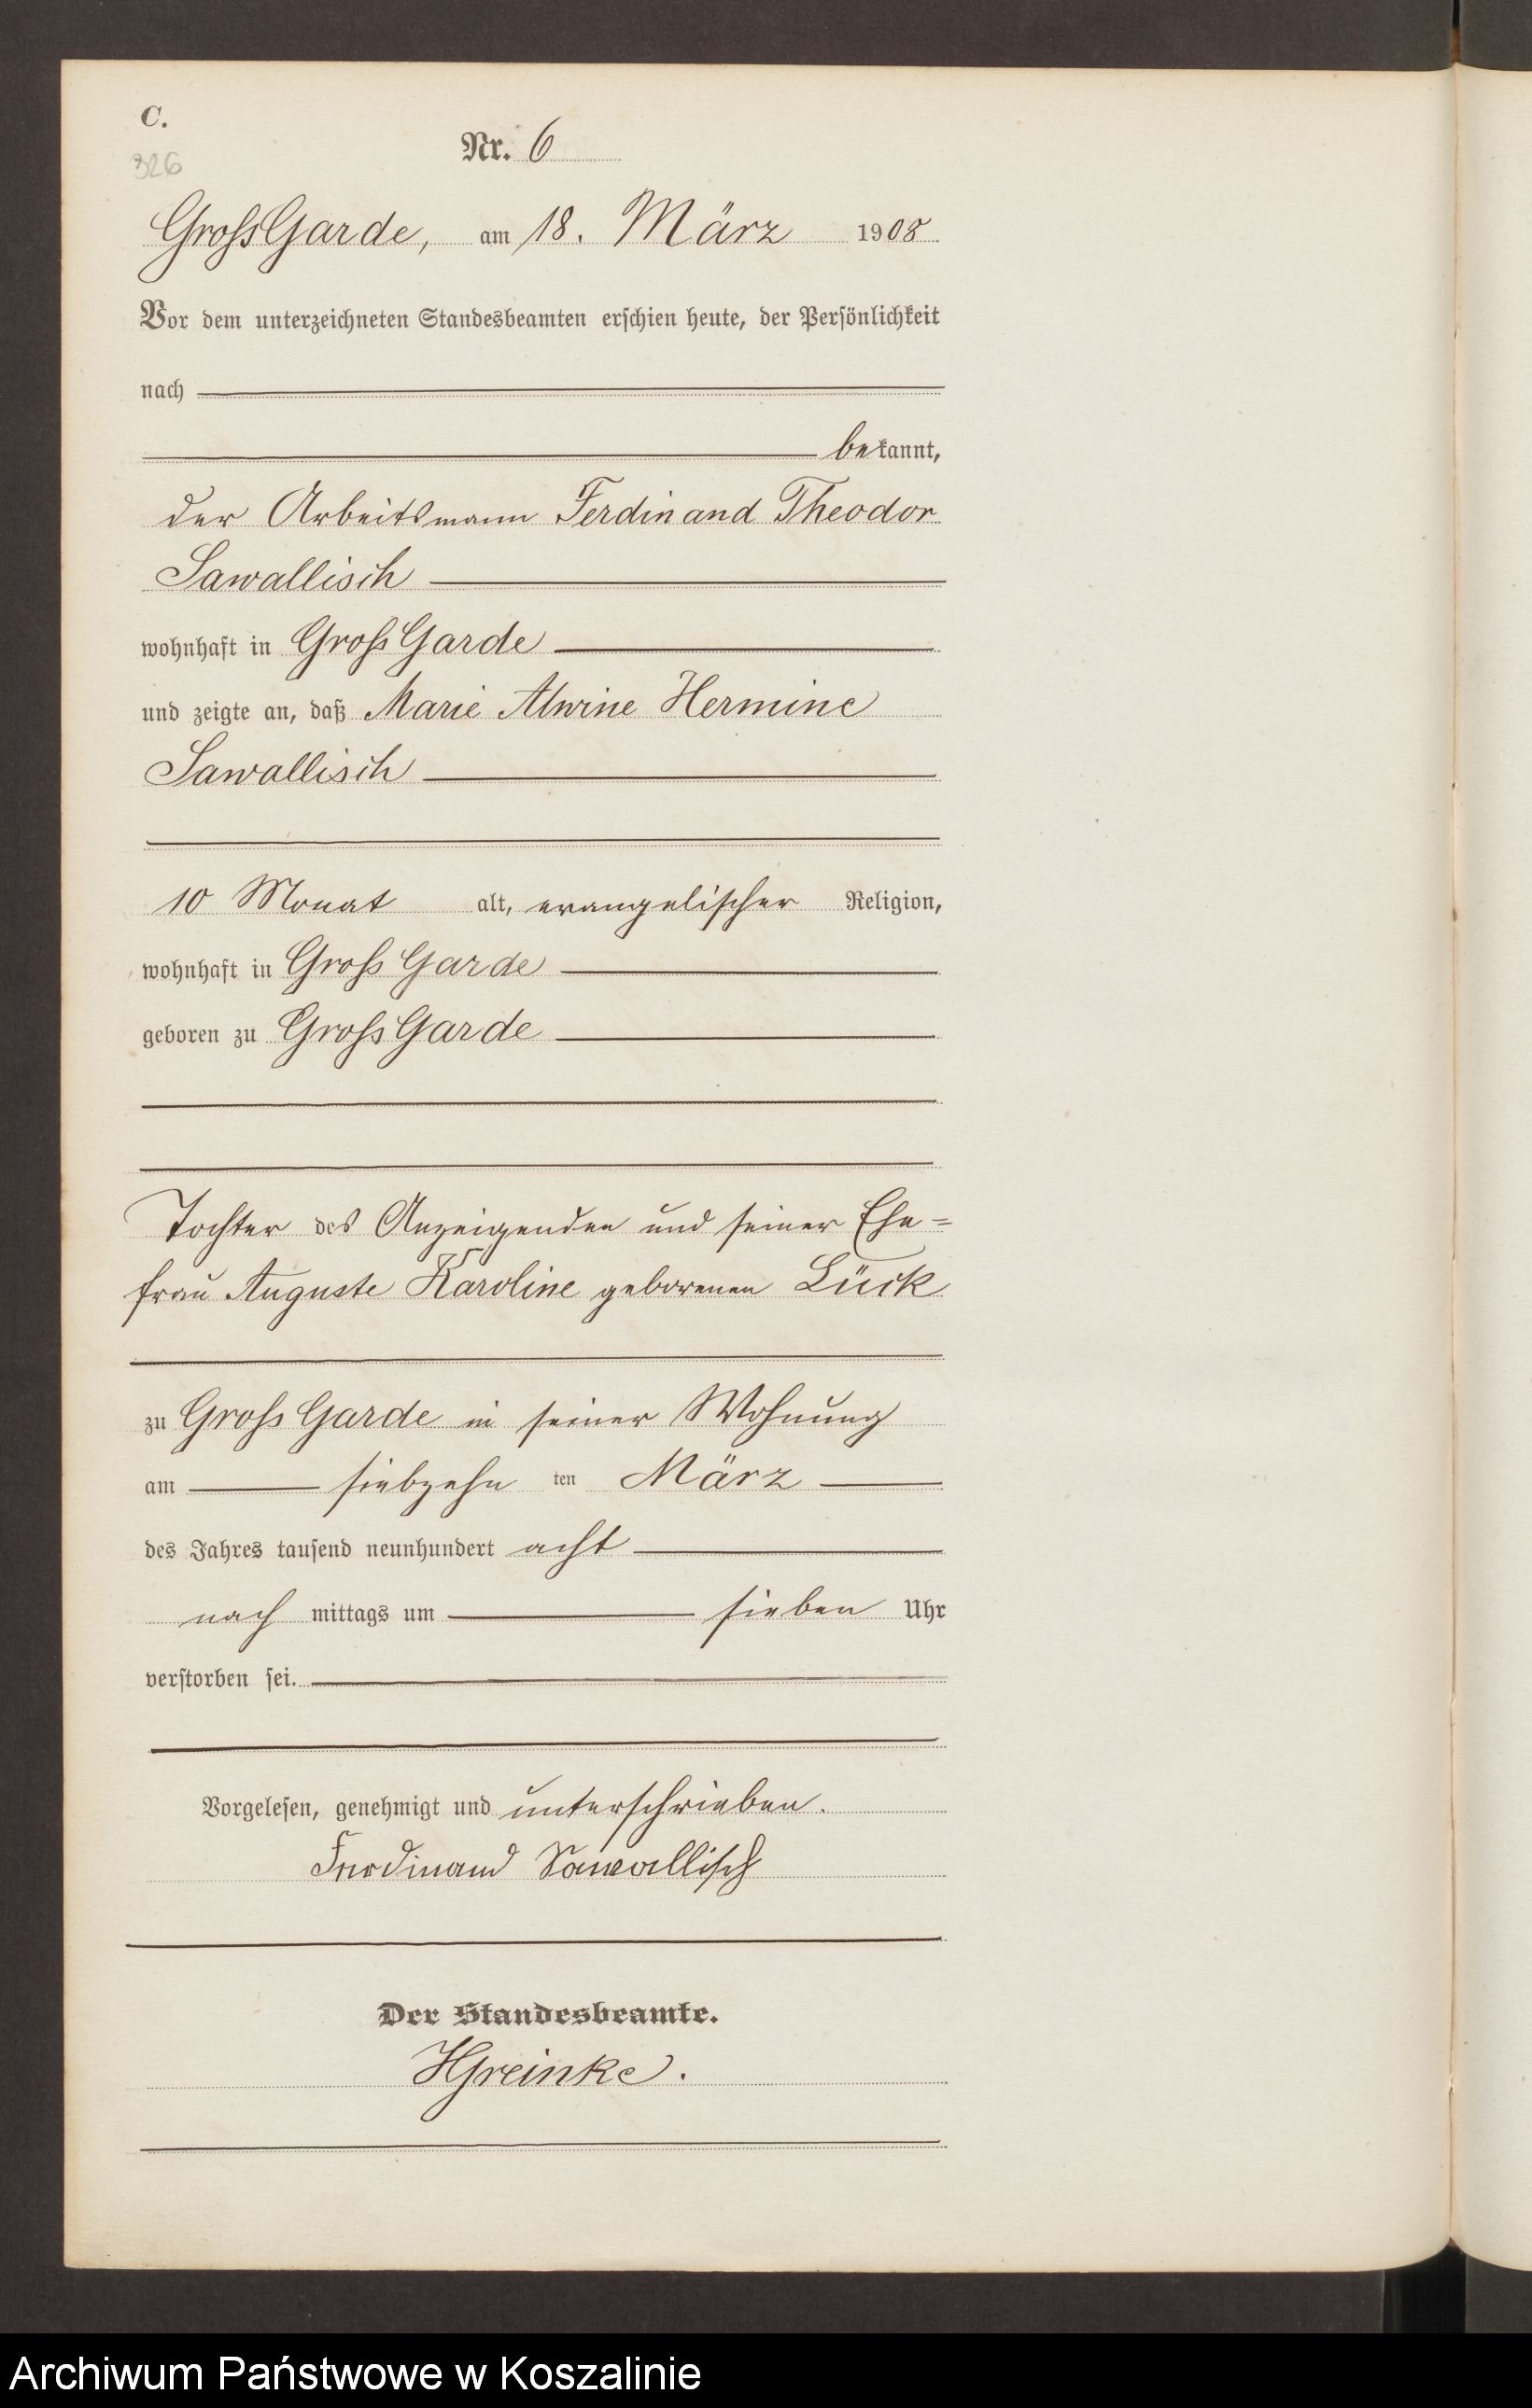 C.
326
Nr. 6
Gross Garde, am 18. März 1908
Vor dem unterzeichneten Standesbeamten erschien heute, der Persönlichkeit
nach
bekannt,
der Arbeitsmann Ferdinand Theodor
Sawallisch
wohnhaft in Gross Garde
und zeigte an, daß Marie Alwine Hermine
Sawallisch
10 Monat alt, evangelischer Religion,
wohnhaft in Gross Garde
geboren zu Gross Garde
Tochter des Anzeigenden und seiner Ehe=
frau Auguste Karoline geborenen Lück
zu Gross Garde in seiner Wohnung
am siebzehn ten März
des Jahres tausend neunhundert acht
nach mittags um sieben Uhr
verstorben sei.
Vorgelesen, genehmigt und unterschrieben.
Ferdinand Sawallisch
Der Standesbeamte.
HGreinke.
Archiwum Państwowe w Koszalinie